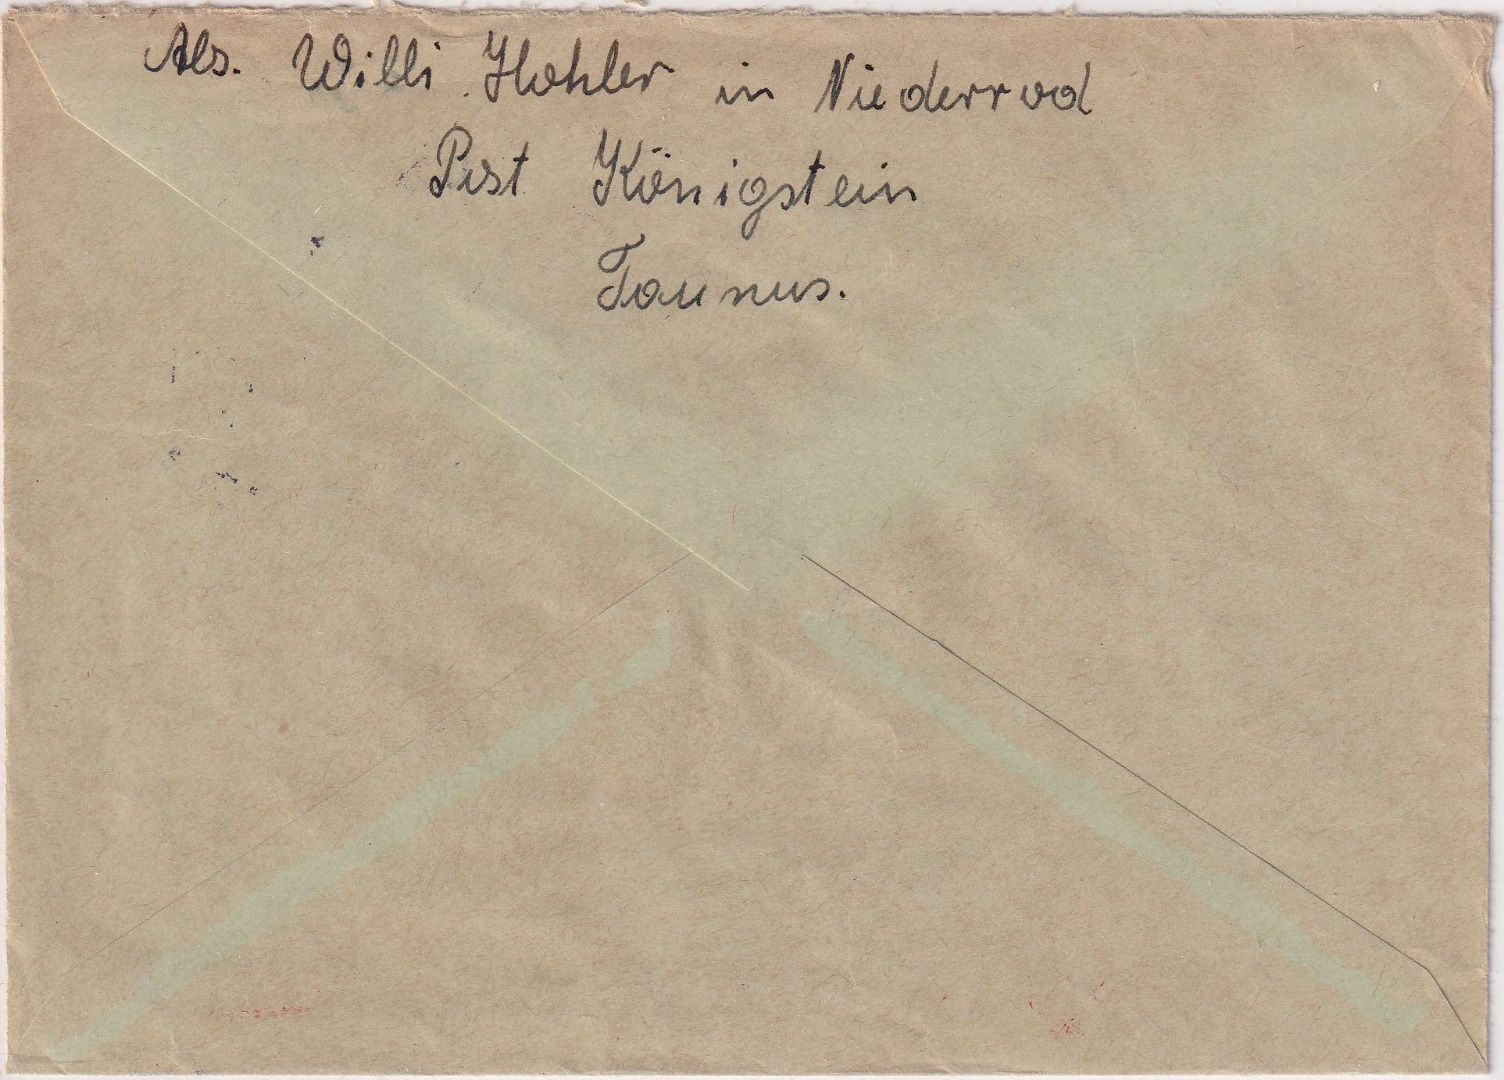 Abs. Willi Hohler in Niederrod
Post Königstein
Taunus.